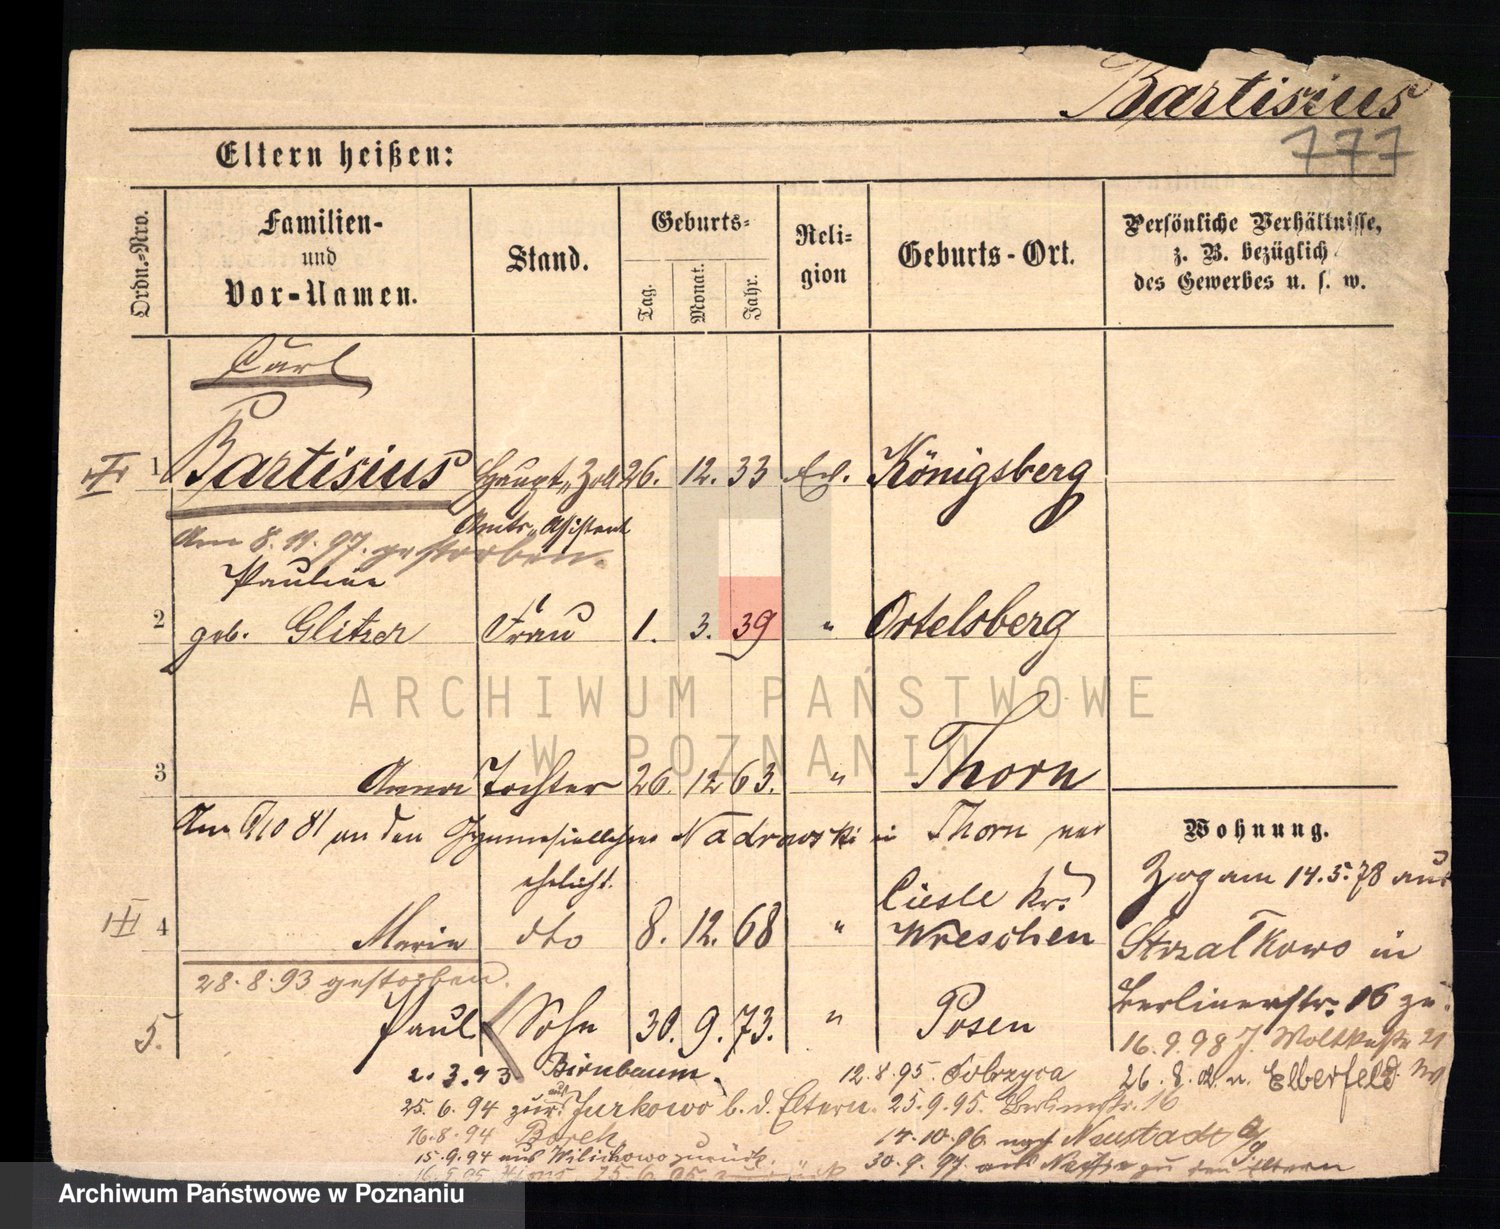 Bartisius
777
Eltern heißen:
Ordn.-Nro.
Familien- und Vor-Namen.
Stand.
Geburts-
Tag.
Monat.
Jahr.
Religion
Geburts-Ort.
Persönliche Verhältnisse,
z. B. bezüglich
des Gewerbes u. s. w.
Carl
1 Bartisius Haupt-Zoll 26. 12. 33 Königsberg
Amts-Assistent
Am 8. 11. 97. gestorben.
Pauline
2 geb. Glitzer Frau 1. 3. 39 " Ortelsberg
3 Anna Tochter 26. 12 63. " Thorn
Am 81 an den Gymnasiallehrer Nadrowski in Thorn ver
ehelicht.
Ciesle Kr.
4 Marie dto 8. 12. 68 " Wreschen
28.8.93 gestorben.
5. Paul Sohn 30. 9. 73. " Posen
Wohnung.
Zog am 14.5.78 aus
Strzalkowo in
Berlinerstr. 16 zu.
16.9.98
26.8. Elberfeld
2.3.93 Birnbaum
12.8.95. Dobrzyca
25.6.94 zur. Jurkowo b. d. Eltern. 25.9.95. Berlinerstr. 16
16.8.94 Borek
14.10.96. nach Neustadt
15.9.94 aus Wilichowo zurück.
30.9.97. aus Neisse zu den Eltern
ARCHIWUM PAŃSTWOWE
W POZNANIU
Archiwum Państwowe w Poznaniu